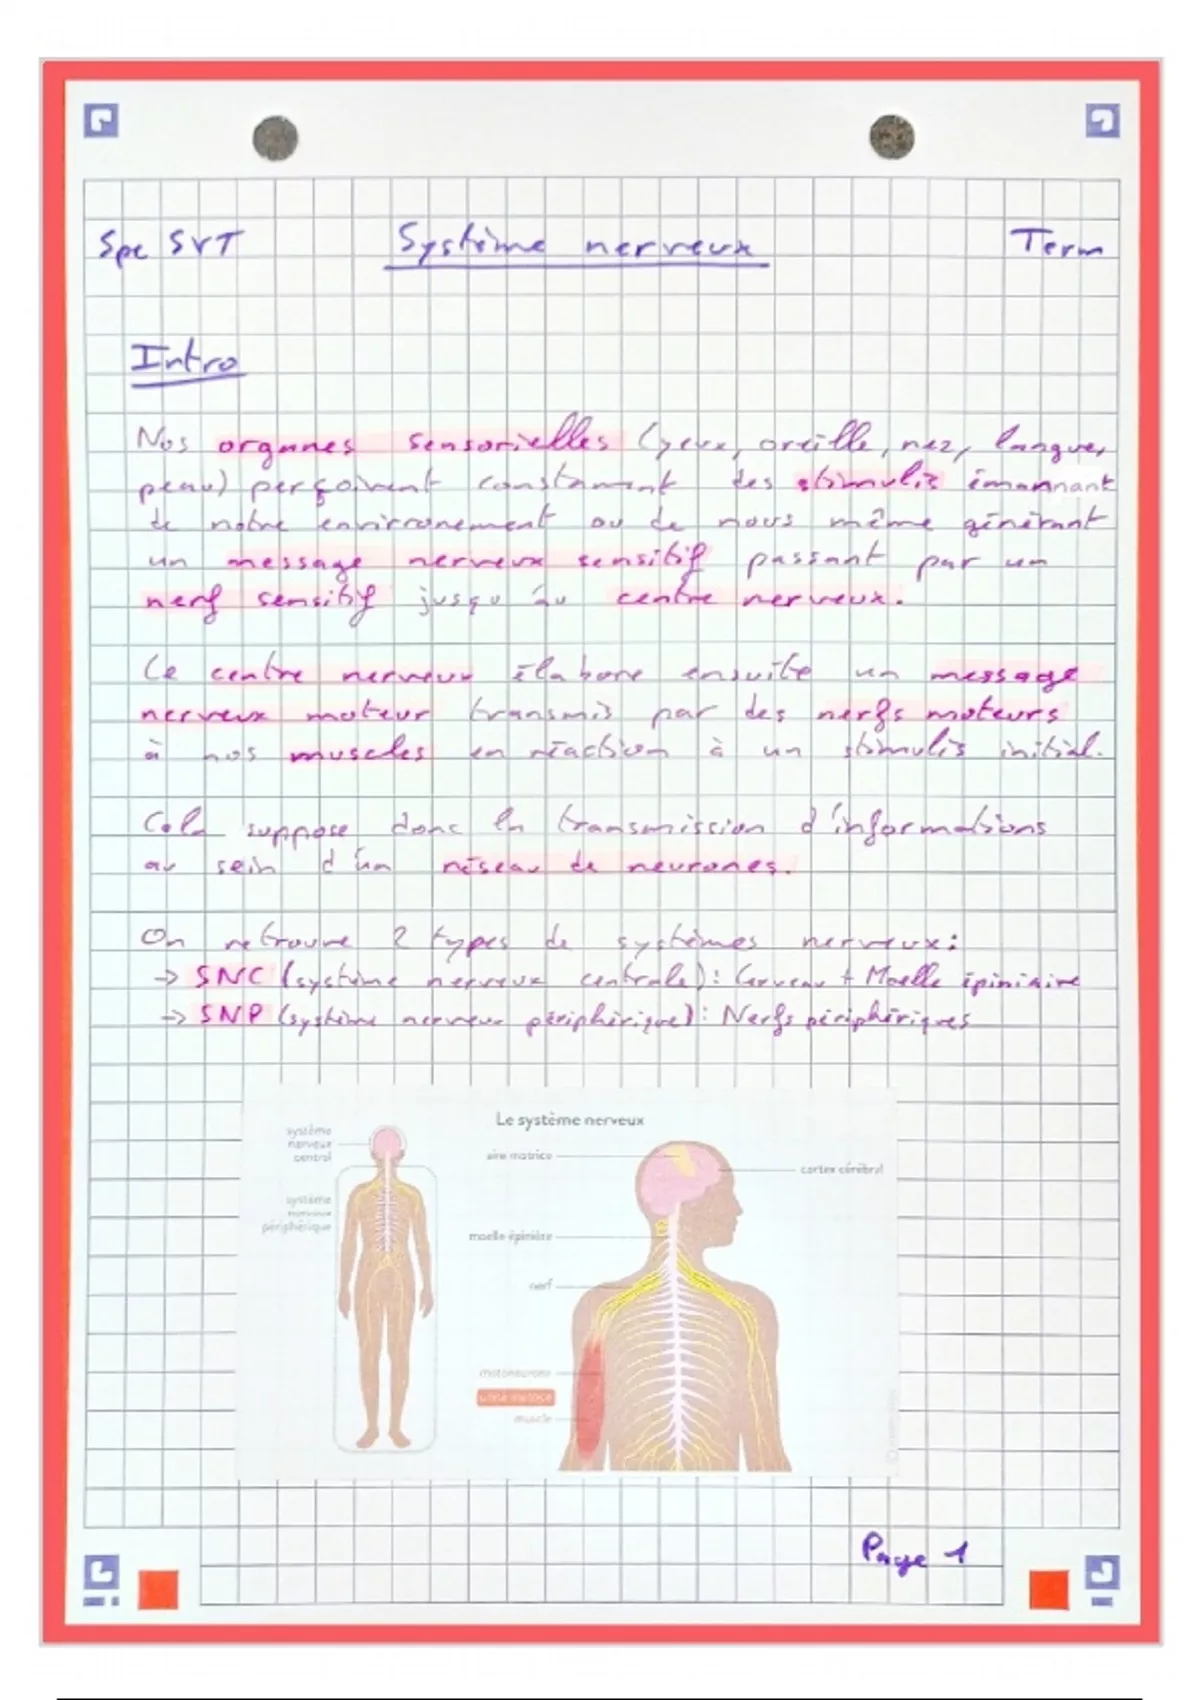 Spe SVT Système nerveux Term
Intro
Nos organes sensorielles (yeux, oreille, nez, langue,
peau) perçoivent constament des stimulis émannant
de notre envirronement ou de nous même générant
un message nerveux sensitif passant par un
nerf sensitif jusqu'au centre nerveux.
Ce centre nerveux élabore ensuite un message
nerveux moteur transmis par des nerfs moteurs
à nos muscles en réaction à un stimulis initial.
Cela suppose donc la transmission d'informations
au sein d'un réseau de neurones.
On retrouve 2 types de systèmes nerveux:
→ SNC (système nerveux centrale): Cerveau + Moelle épinière
→ SNP (système nerveux périphérique): Nerfs périphériques
Le système nerveux
système
nerveux
central
système
nerveux
périphérique
aire motrice
cortex cérébral
moelle épinière
nerf
motoneurone
unité motrice
muscle
Page 1